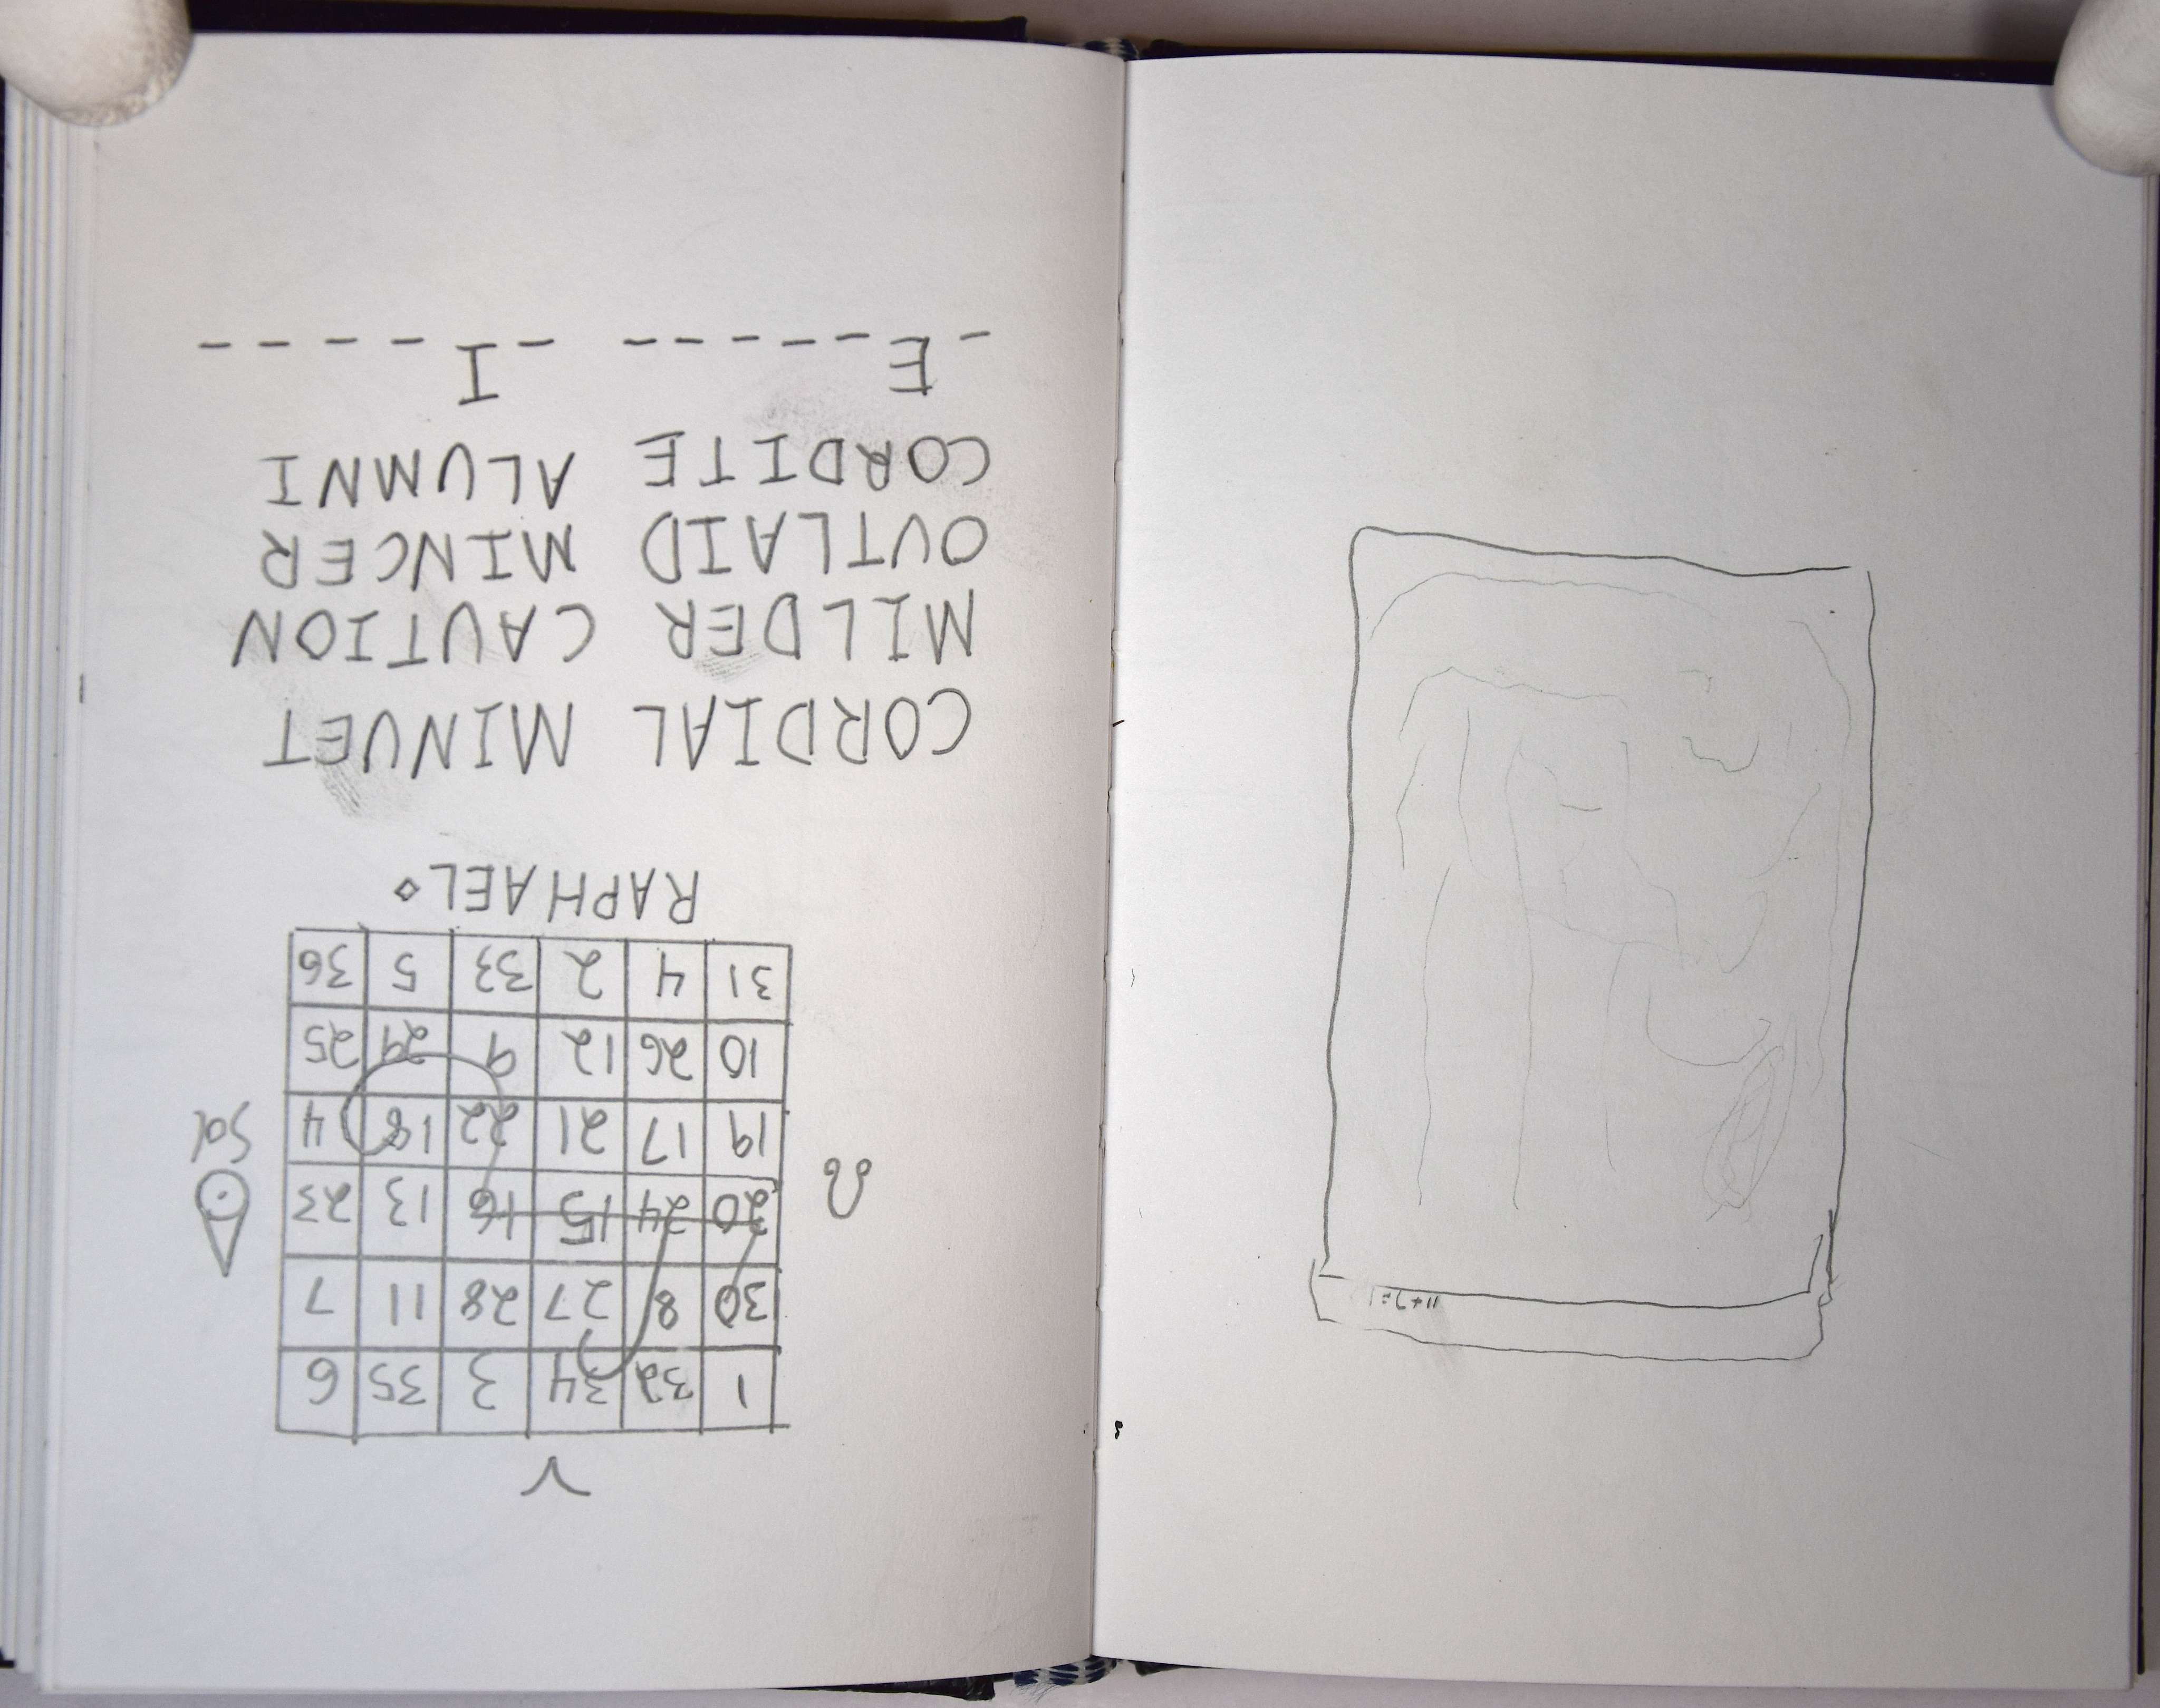 ♈
1 32 34 3 35 6
30 8 27 28 11 7
♌ 20 24 15 16 13 23
19 17 21 22 18 4 Sol
10 26 12 9 29 25
31 4 2 33 5 36
RAPHAEL
CORDIAL MINUET
MILDER CAUTION
OUTLAID MINCER
CORDITE ALUMNI
E I
11+7=1